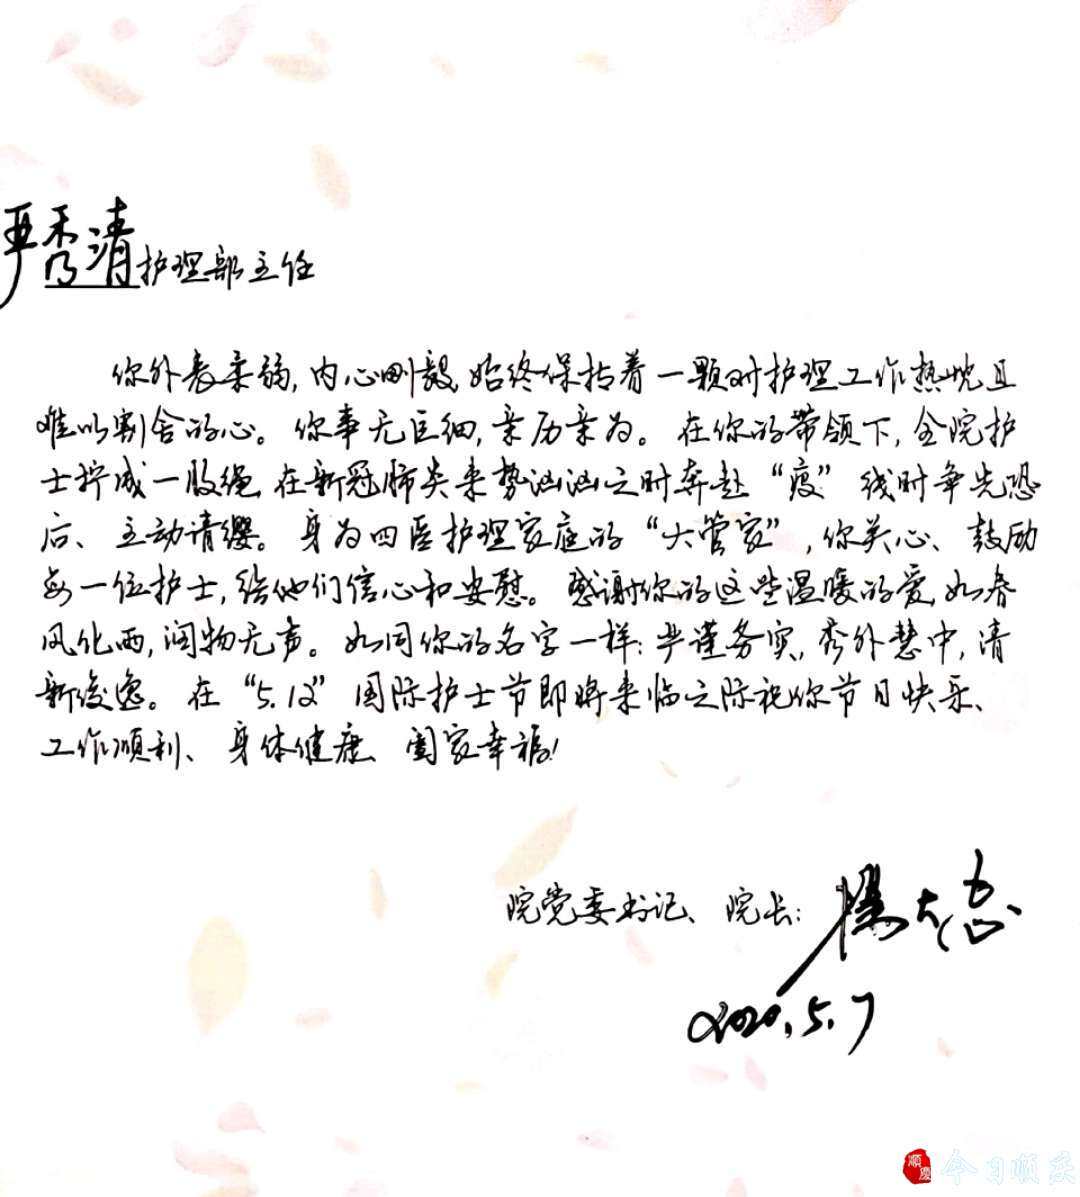 严秀清护理部主任
你外表柔弱,内心刚毅,始终保持着一颗对护理工作热忱且
难以割舍的心。你事无巨细,亲历亲为。在你的带领下,全院护
士拧成一股绳,在新冠肺炎来势汹汹之时奔赴“疫”线时争先恐
后、主动请缨。身为四医护理家庭的“大管家”,你关心、鼓励
每一位护士,给他们信心和安慰。感谢你的这些温暖的爱,如春
风化雨,润物无声。如同你的名字一样:严谨务实,秀外慧中,清
新俊逸。在“5.12”国际护士节即将来临之际祝你节日快乐、
工作顺利、身体健康、阖家幸福!
院党委书记、院长:杨大志
2020.5.7
顺庆 今日顺庆